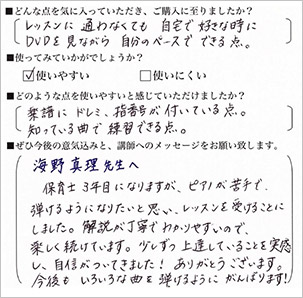 ■どんな点を気に入っていただき、ご購入に至りましたか?
レッスンに通わなくても 自宅で好きな時に
DVDを見ながら 自分のペースで できる点。
■使ってみていかがでしょうか?
☑使いやすい □使いにくい
■どのような点を使いやすいと感じていただけましたか?
楽譜に ドレミ、指番号が付いている点。
知っている曲で 練習できる点。
■ぜひ今後の意気込みと、講師へのメッセージをお願い致します。
海野真理先生へ
保育士3年目になりますが、ピアノが苦手で、
弾けるようになりたいと思い、レッスンを受けることに
しました。解説が丁寧でわかりやすいので、
楽しく続けています。少しずつ上達していることを実感
し、自信がついてきました! ありがとうございます。
今後も いろいろな曲を 弾けるように がんばります!